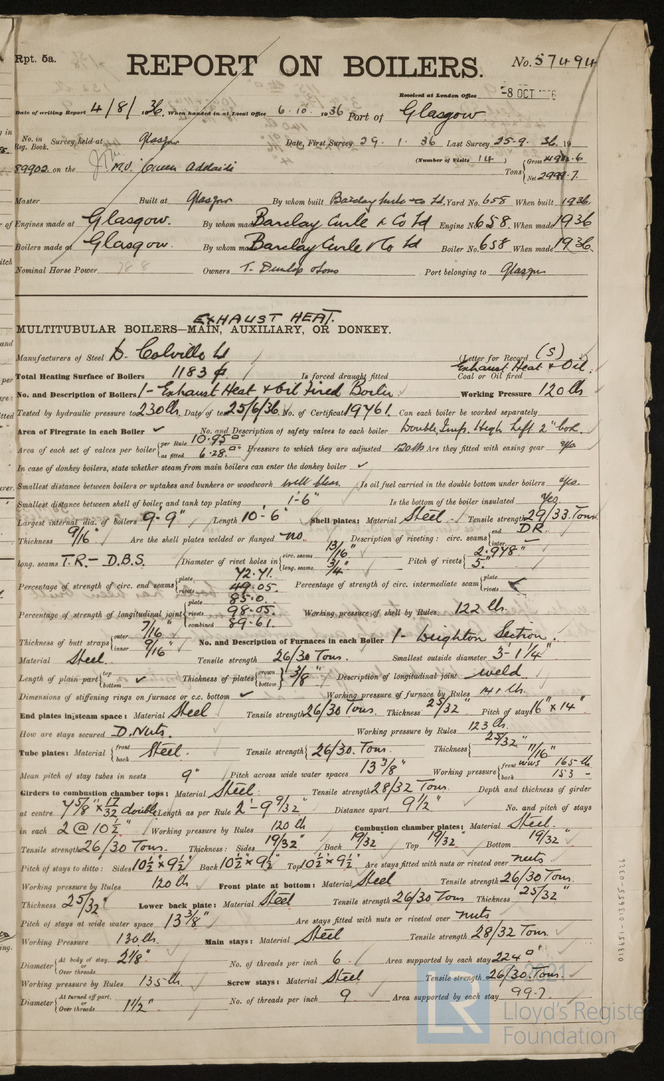 Rpt. 5a.
REPORT ON BOILERS.
No. 57494
Received at London Office -8 OCT 1936
Date of writing Report 4/8/36. When handed in at Local Office 6.10.1936 Port of Glasgow
No. in Reg. Book. Survey held at Glasgow Date, First Survey 29.1.36 Last Survey 25.9.36. 19
(Number of Visits 14)
89902 on the M.V. Queen Adelaide Tons Gross Net 2999.7
Master Built at Glasgow By whom built Barclay Curle & Co Ld. Yard No. 655 When built 1936
Engines made at Glasgow. By whom made Barclay Curle & Co Ld Engine No. 658. When made 1936
Boilers made at Glasgow. By whom made Barclay Curle & Co Ld Boiler No. 658 When made 1936.
Nominal Horse Power Owners T. Dunlop & Sons Port belonging to Glasgow
EXHAUST HEAT.
MULTITUBULAR BOILERS—MAIN, AUXILIARY, OR DONKEY.
Manufacturers of Steel D. Colville Ld (Letter for Record (S)
Total Heating Surface of Boilers 1183 Is forced draught fitted Coal or Oil fired Exhaust Heat & Oil.
No. and Description of Boilers 1- Exhaust Heat & Oil Fired Boiler Working Pressure 120 lb
Tested by hydraulic pressure to 230 lb. Date of test 25/6/36. No. of Certificate 19461. Can each boiler be worked separately
Area of Firegrate in each Boiler No. and Description of safety valves to each boiler Double Imp. High Lift 2" bore
Area of each set of valves per boiler per Rule 10.95 as fitted 6.28 Pressure to which they are adjusted Are they fitted with easing gear yes
In case of donkey boilers, state whether steam from main boilers can enter the donkey boiler
Smallest distance between boilers or uptakes and bunkers or woodwork well clear. Is oil fuel carried in the double bottom under boilers yes.
Smallest distance between shell of boiler and tank top plating 1'-6" Is the bottom of the boiler insulated yes
Largest internal dia. of boilers 9'-9" Length 10'-6" Shell plates: Material Steel. Tensile strength 29/33 Tons
Thickness 9/16" Are the shell plates welded or flanged no. Description of riveting: circ. seams end D.R. inter.
long. seams T.R.- D.B.S. Diameter of rivet holes in circ. seams 13/16" long. seams 3/4" Pitch of rivets 2.948" 5."
Percentage of strength of circ. end seams plate 72.41. rivets 49.05. Percentage of strength of circ. intermediate seam plate rivets
Percentage of strength of longitudinal joint plate 85.0. rivets 98.05. combined 89.61. Working pressure of shell by Rules 122 lb.
Thickness of butt straps outer 7/16" inner 9/16" No. and Description of Furnaces in each Boiler 1- Deighton Section.
Material Steel. Tensile strength 26/30 Tons. Smallest outside diameter 3'-1 1/4"
Length of plain part top bottom Thickness of plates crown bottom 3/8" Description of longitudinal joint weld.
Dimensions of stiffening rings on furnace or c.c. bottom Working pressure of furnace by Rules 141 lb.
End plates in steam space: Material Steel Tensile strength 26/30 Tons. Thickness 25/32" Pitch of stays 16" x 14"
How are stays secured D. Nuts. Working pressure by Rules 123 lb.
Tube plates: Material front back Steel. Tensile strength 26/30. Tons. Thickness 25/32" 11/16"
Mean pitch of stay tubes in nests 9" Pitch across wide water spaces 13 3/8" Working pressure front WWS 165 lb back 153
Girders to combustion chamber tops: Material Steel. Tensile strength 28/32 Tons. Depth and thickness of girder
at centre 7 5/8" x 17/32 double Length as per Rule 2'-9 9/32" Distance apart 9 1/2" No. and pitch of stays
in each 2 @ 10 1/2" Working pressure by Rules 120 lb Combustion chamber plates: Material Steel.
Tensile strength 26/30 Tons. Thickness: Sides 19/32" Back 19/32 Top 19/32 Bottom 19/32"
Pitch of stays to ditto: Sides 10 1/2" x 9 1/2" Back 10 1/2" x 9 1/2" Top 10 1/2" x 9 1/2" Are stays fitted with nuts or riveted over nuts
Working pressure by Rules 120 lb Front plate at bottom: Material Steel Tensile strength 26/30 Tons.
Thickness 25/32" Lower back plate: Material Steel Tensile strength 26/30 Tons Thickness 25/32"
Pitch of stays at wide water space 13 3/8" Are stays fitted with nuts or riveted over nuts
Working Pressure 130 lb. Main stays: Material Steel Tensile strength 28/32 Tons.
Diameter At body of stay, or Over threads. 2 1/8" No. of threads per inch 6. Area supported by each stay 224
Working pressure by Rules 135 lb. Screw stays: Material Steel Tensile strength 26/30. Tons.
Diameter At turned off part, or Over threads. 1 1/2" No. of threads per inch 9 Area supported by each stay 99.7
LR
Lloyd's Register
Foundation